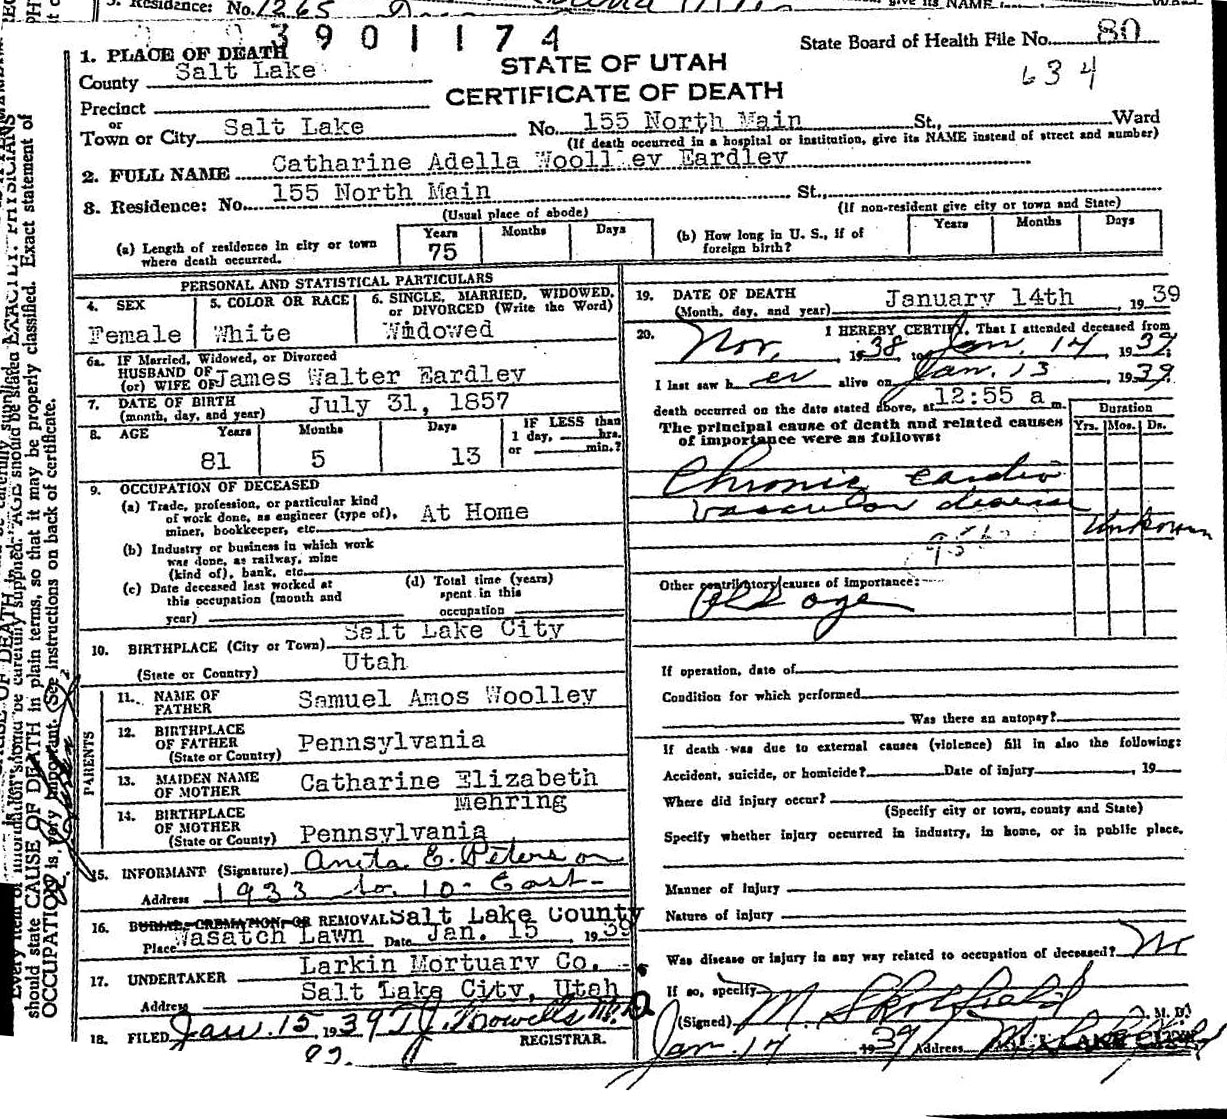 3. Residence: No. 1265
3901174
State Board of Health File No. 80
634
1. PLACE OF DEATH
County Salt Lake
STATE OF UTAH
CERTIFICATE OF DEATH
Precinct
or
Town or City Salt Lake No. 155 North Main St., Ward
(If death occurred in a hospital or institution, give its NAME instead of street and number)
2. FULL NAME Catharine Adella Woolley Eardley
3. Residence: No. 155 North Main St.,
(Usual place of abode) (If non-resident give city or town and State)
(a) Length of residence in city or town where death occurred. Years 75 Months Days
(b) How long in U. S., if of foreign birth? Years Months Days
PERSONAL AND STATISTICAL PARTICULARS
4. SEX Female
5. COLOR OR RACE White
6. SINGLE, MARRIED, WIDOWED, or DIVORCED (Write the Word) Widowed
6a. IF Married, Widowed, or Divorced
HUSBAND OF
(or) WIFE OF James Walter Eardley
7. DATE OF BIRTH
(month, day, and year) July 31, 1857
8. AGE Years 81 Months 5 Days 13 IF LESS than 1 day, hrs. or min.?
9. OCCUPATION OF DECEASED
(a) Trade, profession, or particular kind
of work done, as engineer (type of),
miner, bookkeeper, etc. At Home
(b) Industry or business in which work
was done, as railway, mine
(kind of), bank, etc.
(c) Date deceased last worked at
this occupation (month and
year)
(d) Total time (years)
spent in this
occupation
10. BIRTHPLACE (City or Town) Salt Lake City
(State or Country) Utah
PARENTS
11. NAME OF FATHER Samuel Amos Woolley
12. BIRTHPLACE OF FATHER
(State or Country) Pennsylvania
13. MAIDEN NAME OF MOTHER Catharine Elizabeth
Mehring
14. BIRTHPLACE OF MOTHER
(State or Country) Pennsylvania
15. INFORMANT (Signature) Anita E. Peterson
Address 1933 So. 10- East-
16. BURIAL, CREMATION OR REMOVAL Salt Lake County
Place Wasatch Lawn Date Jan. 15 1939
17. UNDERTAKER Larkin Mortuary Co.
Address Salt Lake City, Utah
18. FILED Jan. 15, 1939 T.J. Howells M.D.
REGISTRAR.
19. DATE OF DEATH
(Month, day, and year) January 14th 1939
20. I HEREBY CERTIFY, That I attended deceased from
Nov, 1938 to Jan. 14, 1939;
I last saw her alive on Jan. 13 1939
death occurred on the date stated above, at 12:55 a m.
The principal cause of death and related causes
of importance were as follows:
Duration
Yrs. Mos. Ds.
Chronic cardio
vascular disease
Unknown
Other contributory causes of importance:
Old age
If operation, date of
Condition for which performed
Was there an autopsy?
If death was due to external causes (violence) fill in also the following:
Accident, suicide, or homicide? Date of injury , 19
Where did injury occur?
(Specify city or town, county and State)
Specify whether injury occurred in industry, in home, or in public place.
Manner of injury
Nature of injury
Was disease or injury in any way related to occupation of deceased?
If so, specify
(Signed) M. Skolfield M. D.
Jan. 14 1939 Address
should state CAUSE OF DEATH in plain terms, so that it may be properly classified. Exact statement of
OCCUPATION is very important. (See instructions on back of certificate.